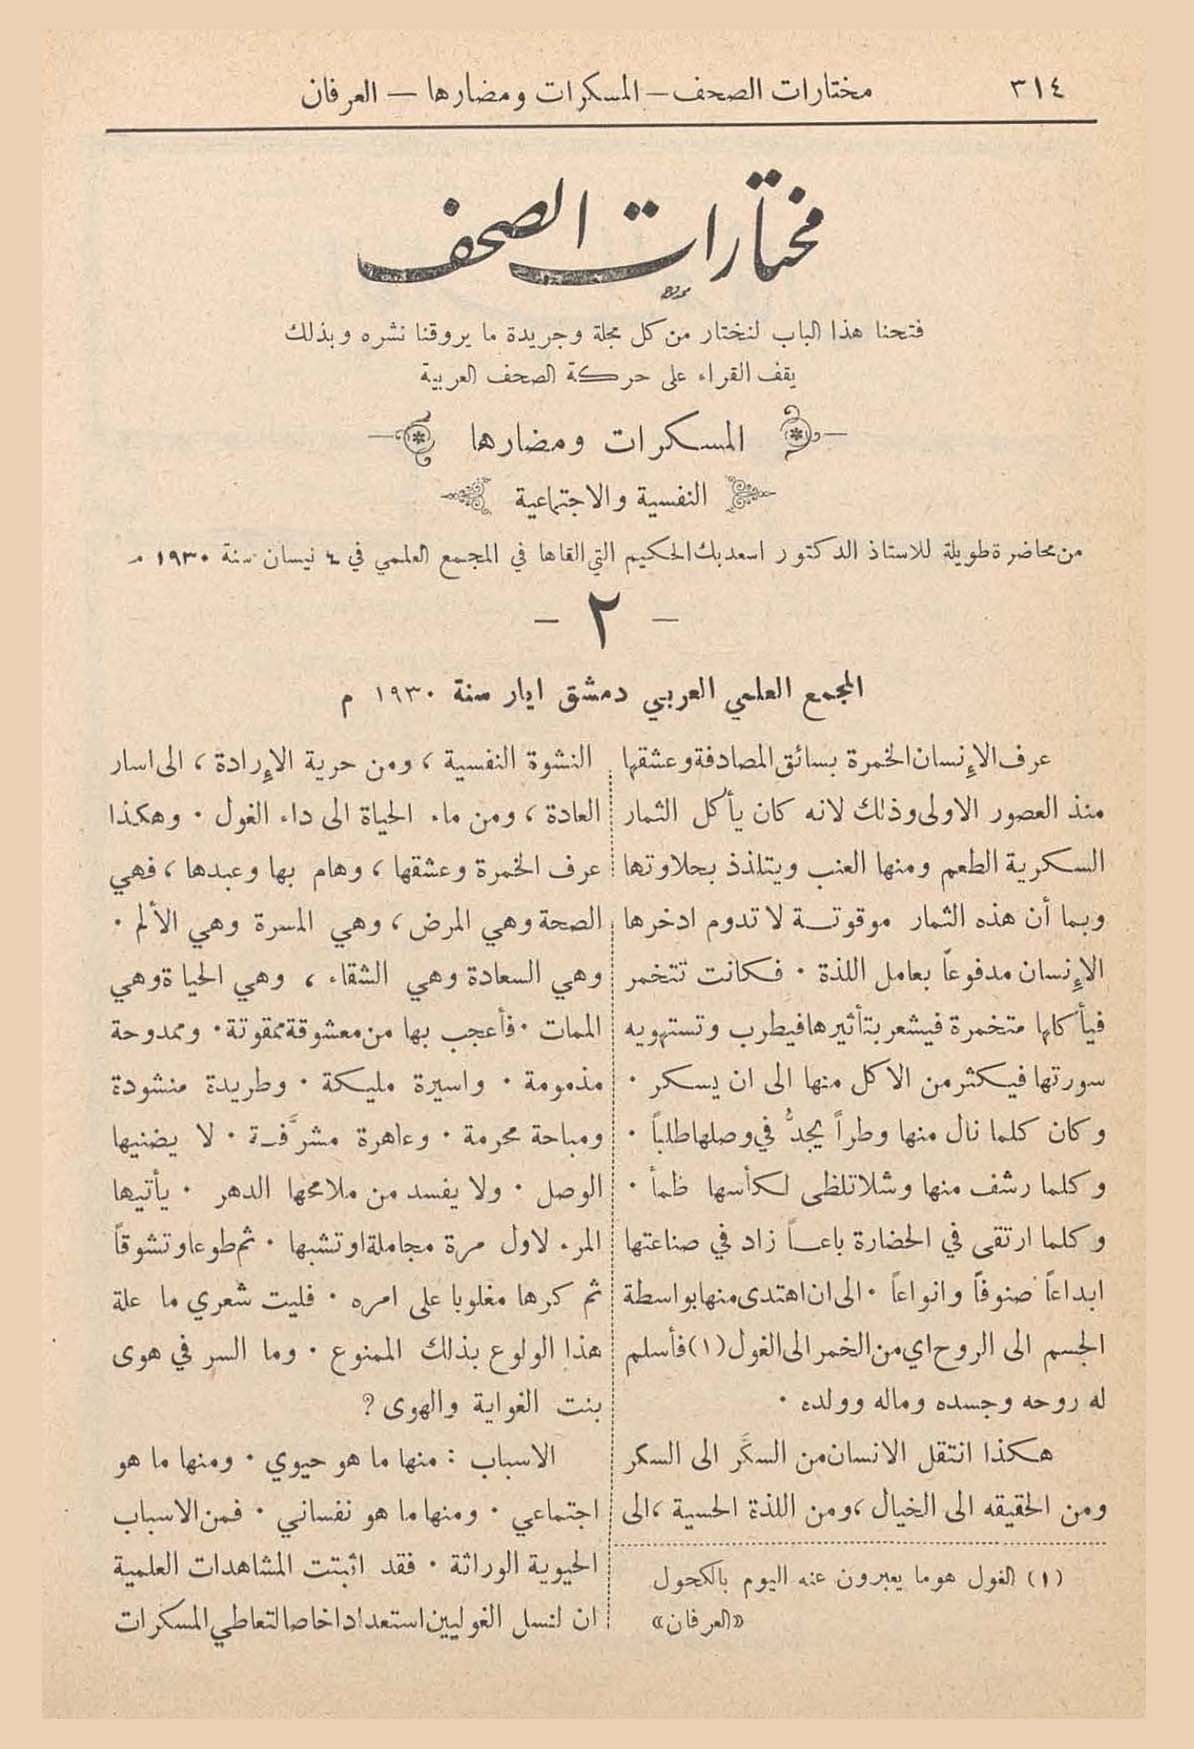 ٣١٤
مختارات الصحف — المسكرات ومضارها — العرفان
مختارات الصحف
فتحنا هذا الباب لنختار من كل مجلة وجريدة ما يروقنا نشره وبذلك
يقف القراء على حركة الصحف العربية
المسكرات ومضارها
النفسية والاجتماعية
من محاضرة طويلة للاستاذ الدكتور اسعد بك الحكيم التي القاها في المجمع العلمي في ٤ نيسان سنة ١٩٣٠ م
— ٢ —
المجمع العلمي العربي دمشق ايار سنة ١٩٣٠ م
عرف الإنسان الخمرة بسائق المصادفة وعشقها
منذ العصور الاولى وذلك لانه كان يأكل الثمار
السكرية الطعم ومنها العنب ويتلذذ بحلاوتها
وبما أن هذه الثمار موقوتة لا تدوم ادخرها
الإنسان مدفوعاً بعامل اللذة . فكانت تتخمر
فيأكلها متخمرة فيشعر بتأثيرها فيطرب وتستهويه
سورتها فيكثر من الاكل منها الى ان يسكر .
وكان كلما نال منها وطراً يجدُّ في وصلها طلباً .
وكلما رشف منها وشلا تلظى لكأسها ظمأ .
وكلما ارتقى في الحضارة باعاً زاد في صناعتها
ابداعاً صنوفاً وانواعاً . الى ان اهتدى منها بواسطة
الجسم الى الروح اي من الخمر الى الغول (١) فأسلم
له روحه وجسده وماله وولده .
هكذا انتقل الانسان من السكَّر الى السكر
ومن الحقيقه الى الخيال ، ومن اللذة الحسية ، الى
(١) الغول هو ما يعبرون عنه اليوم بالكحول
«العرفان»
النشوة النفسية ، ومن حرية الإرادة ، الى اسار
العادة ، ومن ماء الحياة الى داء الغول . وهكذا
عرف الخمرة وعشقها ، وهام بها وعبدها ، فهي
الصحة وهي المرض ، وهي المسرة وهي الألم .
وهي السعادة وهي الشقاء ، وهي الحياة وهي
الممات . فأعجب بها من معشوقة ممقوتة . وممدوحة
مذمومة . واسيرة مليكة . وطريدة منشودة
ومباحة محرمة . وعاهرة مشرَّفة . لا يضنيها
الوصل . ولا يفسد من ملامحها الدهر . يأتيها
المرء لاول مرة مجاملة او تشبها . ثم طوعا وتشوقاً
ثم كرها مغلوبا على امره . فليت شعري ما علة
هذا الولوع بذلك الممنوع . وما السر في هوى
بنت الغواية والهوى ؟
الاسباب : منها ما هو حيوي . ومنها ما هو
اجتماعي . ومنها ما هو نفساني . فمن الاسباب
الحيوية الوراثة . فقد اثبتت المشاهدات العلمية
ان لنسل الغوليين استعدادا خاصا لتعاطي المسكرات